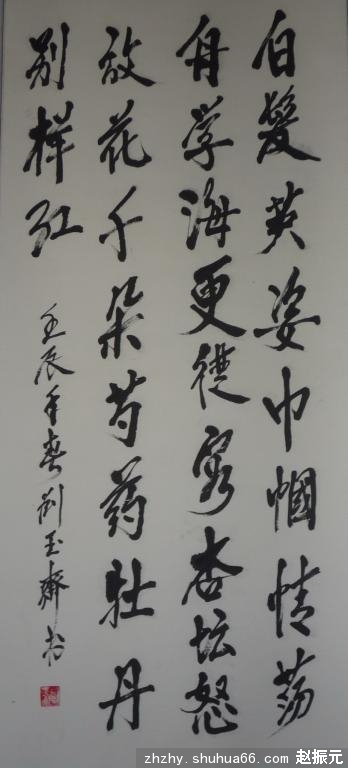 白髮英姿巾帼情荡
舟学海更從容杏坛怒
放花千朵芍药牡丹
别样红
壬辰年春刘玉齐书
zhzhy.shuhua66.com 赵振元